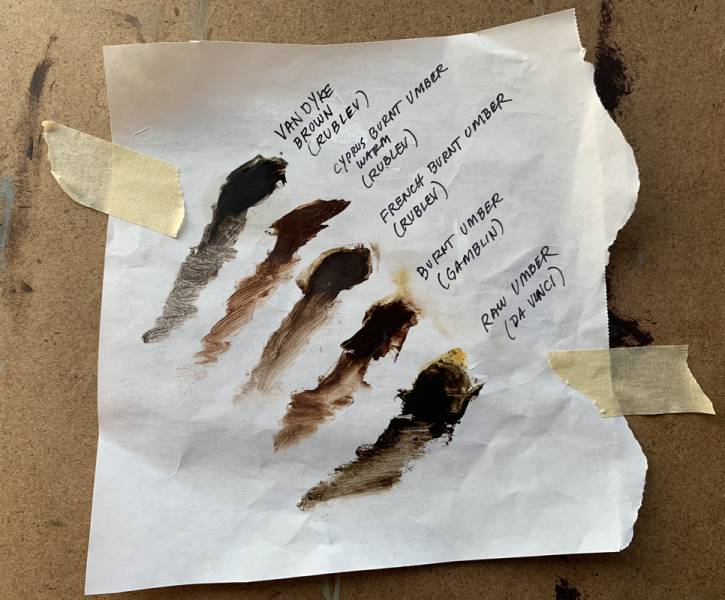 VAN DYKE
BROWN
(RUBLEV)
CYPRUS BURNT UMBER
WARM
(RUBLEV)
FRENCH BURNT UMBER
(RUBLEV)
BURNT UMBER
(GAMBLIN)
RAW UMBER
(DA VINCI)